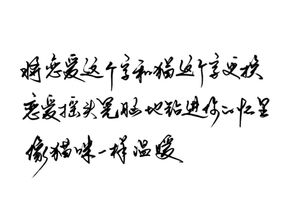 将恋爱这个字和猫这个字更换
恋爱摇头晃脑地钻进你的怀里
像猫咪一样温暖